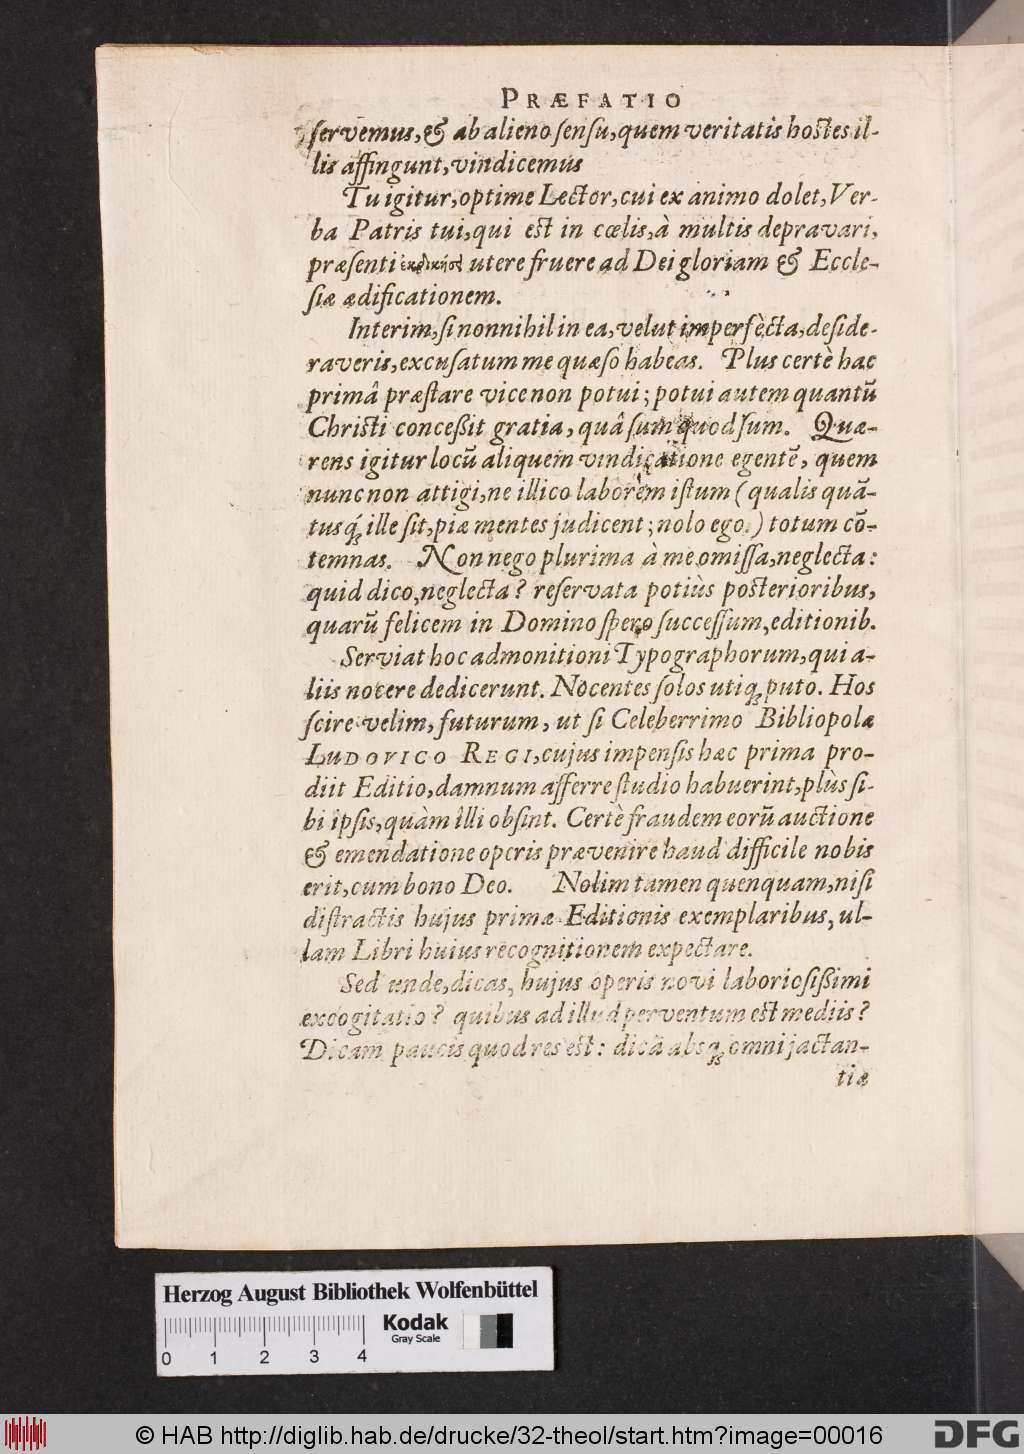 PRÆFATIO
servemus, & ab alieno sensu, quem veritatis hostes il-
lis affingunt, vindicemus
Tu igitur, optime Lector, cui ex animo dolet, Ver-
ba Patris tui, qui est in cœlis, à multis depravari,
præsenti utere fruere ad Dei gloriam & Eccle-
siæ ædificationem.
Interim, si nonnihil in ea, velut imperfècta, deside-
raveris, excusatum me quæso habeas. Plus certè hac
primâ præstare vice non potui; potui autem quantũ
Christi conceßit gratia, quâ sum quod sum. Quæ-
rens igitur locũ aliquem vindicatione egentẽ, quem
nunc non attigi, ne illico laborem istum (qualis quã-
tusq́; ille sit, piæ mentes judicent; nolo ego.) totum cõ-
temnas. Non nego plurima à me omissa, neglecta:
quid dico, neglecta? reservata potiùs posterioribus,
quarũ felicem in Domino spero successum, editionib.
Serviat hoc admonitioni Typographorum, qui a-
liis nocere dedicerunt. Nocentes solos utiq; puto. Hos
scire velim, futurum, ut si Celeberrimo Bibliopolæ
LUDOVICO REGI, cujus impensis hæc prima pro-
diit Editio, damnum afferre studio habuerint, plùs si-
bi ipsis, quàm illi obsint. Certè fraudem eorũ auctione
& emendatione operis prævenire haud difficile nobis
erit, cum bono Deo. Nolim tamen quenquam, nisi
distractis hujus primæ Editionis exemplaribus, ul-
lam Libri huius recognitionem expectare.
Sed unde, dicas, hujus operis novi laboriosißimi
excogitatio? quibus ad illud perventum est mediis?
Dicam paucis quod res est: dicã absq; omni jactan-
tiæ
Herzog August Bibliothek Wolfenbüttel
Kodak
Gray Scale
0 1 2 3 4
© HAB http://diglib.hab.de/drucke/32-theol/start.htm?image=00016
DFG